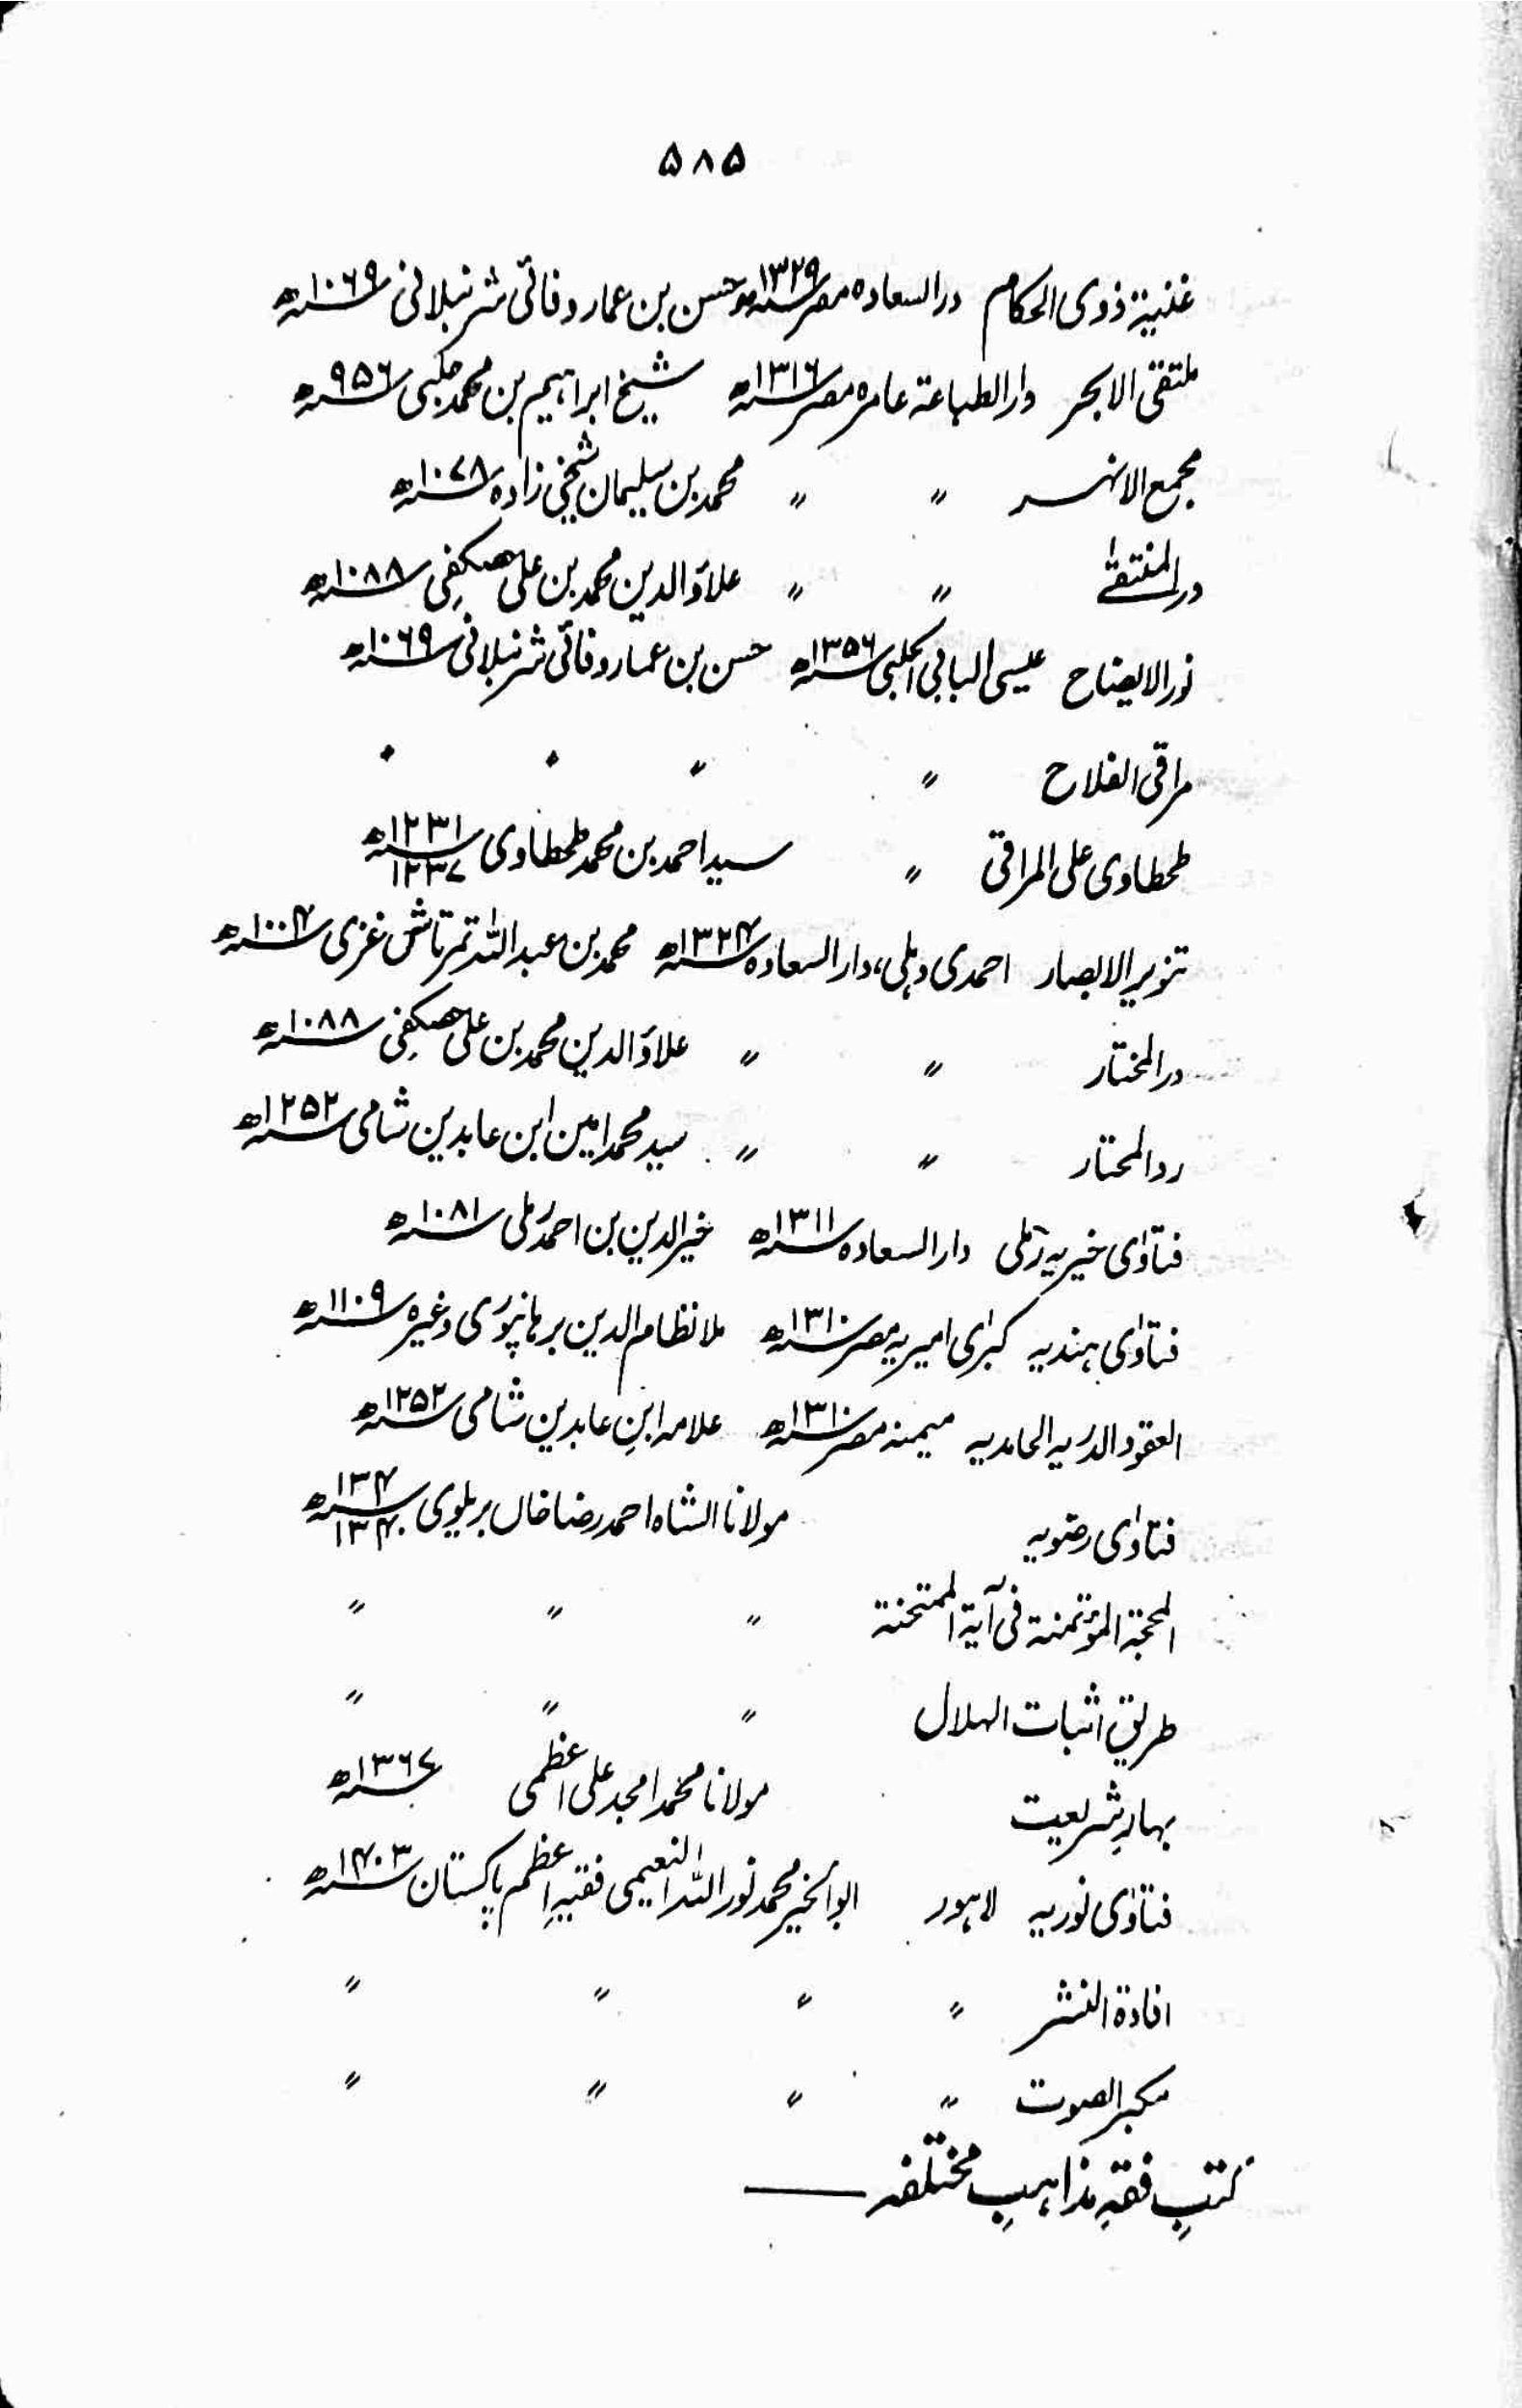 ۵۸۵
غنیۃ ذوی الحکام درالسعادہ مصر ۱۳۲۹ھ حسن بن عمار وفائی شرنبلانی ۱۰۶۹ھ
ملتقی الابحر دارالطباعۃ عامرہ مصر ۱۳۱۶ھ شیخ ابراہیم بن محمد حلبی ۹۵۶ھ
مجمع الانہر " " محمد بن سلیمان شیخی زادہ ۱۰۷۸ھ
درالمنتقیٰ " " علاؤالدین محمد بن علی حصکفِی ۱۰۸۸ھ
نورالایضاح عیسی البابی الحلبی ۱۳۵۶ھ حسن بن عمار وفائی شرنبلانی ۱۰۶۹ھ
مراقی الفلاح " " " "
طحطاوی علی المراقی " سید احمد بن محمد طحطاوی ۱۲۳۱ھ ۱۲۳۷
تنویر الابصار احمدی دہلی، دارالسعادہ ۱۳۲۴ھ محمد بن عبداللہ تمرتاش غزی ۱۰۰۴ھ
درالمختار " " علاؤالدین محمد بن علی حصکفِی ۱۰۸۸ھ
ردالمحتار " " سید محمد امین ابن عابدین شامی ۱۲۵۲ھ
فتاوٰی خیریہ رملی دارالسعادہ ۱۳۱۱ھ خیرالدین بن احمد رملی ۱۰۸۱ھ
فتاوٰی ہندیہ کبرٰی امیریہ مصر ۱۳۱۰ھ ملا نظام الدین برہانپوری وغیرہ ۱۱۰۹ھ
العقود الدریہ الحامدیہ میمنہ مصر ۱۳۱۰ھ علامہ ابنِ عابدین شامی ۱۲۵۲ھ
فتاوٰی رضویہ مولانا الشاہ احمد رضا خاں بریلوی ۱۳۴ھ ۱۳۴۰
المحجۃ المؤتمنۃ فی آیۃ الممتحنۃ " " "
طریق اثبات الہلال " " "
بہارِ شریعت مولانا محمد امجد علی اعظمی ۱۳۶۷ھ
فتاوٰی نوریہ لاہور ابوالخیر محمد نوراللہ النعیمی فقیہِ اعظم پاکستان ۱۴۰۳ھ
افادۃ النشر " " " "
مکبر الصوت " " " "
کتبِ فقہِ مذاہبِ مختلفہ ——